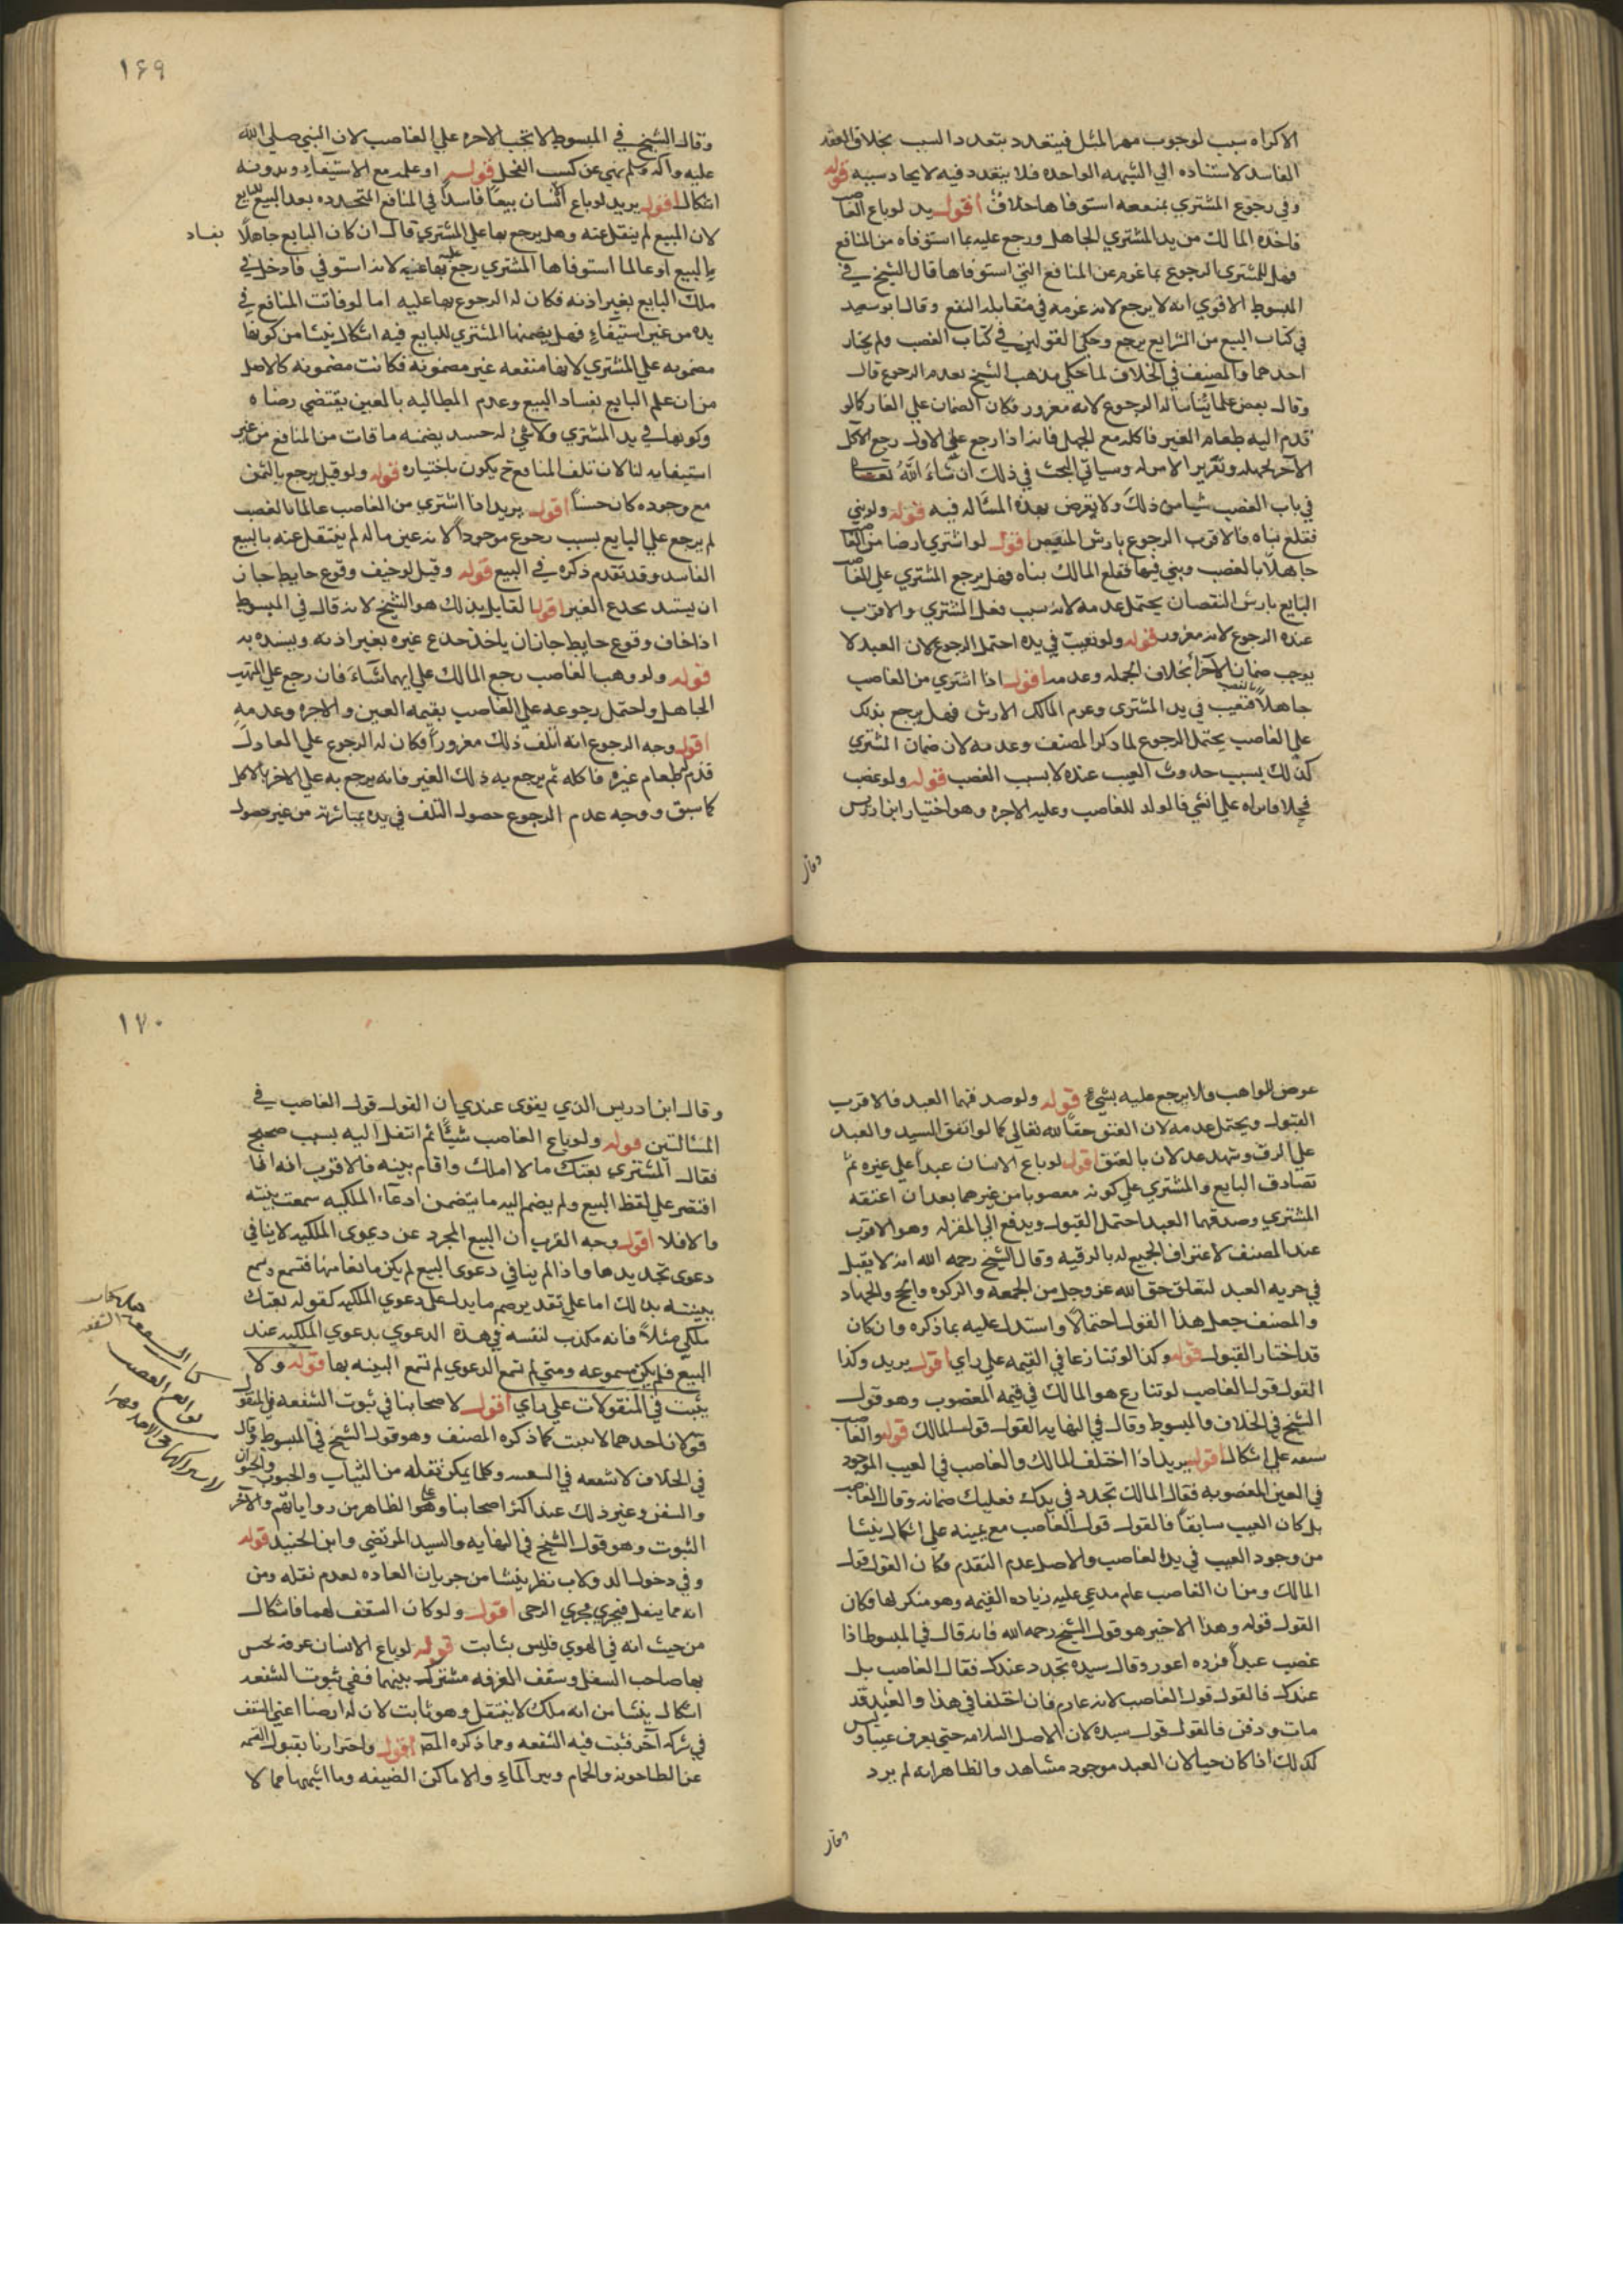 الاكراه سبب لوجوب مهر المثل فيتعدد بتعدد السبب بخلاف العقد
الفاسد لاستناده الي الشبهه الواحده فلا يتعدد فيه لايحاد سببه قوله
وفي رجوع المشتري بمنفعه استوفاها خلاف أقول يريد لو باع الغاصب
فاخذه المالك من يد المشتري الجاهل ورجع عليه بما استوفاه من المنافع
فهل للمشتري الرجوع بما غرم عن المنافع التي استوفاها قال الشيخ في
المبسوط الاقوي انه لا يرجع لانه غرمه في مقابله النفع وقال ابو سعيد
في كتاب البيع من الشرايع يرجع وحكي القولين في كتاب الغصب ولم يختار
احدهما والمصنف في الخلاف لما حكي مذهب الشيخ بعدم الرجوع قال
وقال بعض علمائنا له الرجوع لانه مغرور فكان الضمان علي الغار كما لو
قدم اليه طعام الغير فاكله مع الجهل فانه اذا رجع علي الاول رجع الاكل
الآخر لجهله وتقرير الاموله وسياتي البحث في ذلك ان شاء الله تعالى
في باب الغصب شيا من ذلك ولا يعرض بهذه المساله فيه قوله ولو بني
فقلع بناه فالاقرب الرجوع بارش النقص أقول لو اشتري ارضا من الغاصب
جاهلا بالغصب وبني فيها فقلع المالك بناه فهل يرجع المشتري علي الغاصب
البايع بارش النقصان يحتمل عدمه لانه سبب فعل المشتري والاقرب
عنده الرجوع لانه مغرور قوله ولو تعيب في يده احتمل الرجوع لان العبد لا
يوجب ضمان الاجزا بخلاف الجمله وعدمه أقول اذا اشتري من الغاصب
جاهلا بالغصب فتعيب في يد المشتري وغرم المالك الارش فهل يرجع بذلك
علي الغاصب يحتمل الرجوع لما ذكر المصنف وعدمه لان ضمان المشتري
كذلك بسبب حدوث العيب عنده لا بسبب الغصب قوله ولو غصب
فحلا فانزاه علي انثي فالولد للغاصب وعليه الاجره وهو اختيار ابن ادريس
وقال
١٦٩
وقال الشيخ في المبسوط لا يجب الاجره علي الغاصب لان النبي صلي الله
عليه وآله وسلم نهي عن كسب الفحل قوله او علمه مع الاستيفاء وبدونه
اشكال أقول يريد لو باع انسان بيعا فاسدا في المنافع المتجدده بعد البيع للبايع
لان المبيع لم ينقل عنه وهل يرجع بها علي المشتري قال ان كان البايع جاهلا
بفساد
بالبيع او عالما استوفاها المشتري رجع عليه بها عنيه لانه استوفي فادخل في
ملك البايع بغير اذنه فكان له الرجوع بها عليه اما لو فاتت المنافع في
يده من غير استيفاء فهل يضمنها المشتري للبايع فيه اشكال ينشا من كونها
مضمونه علي المشتري لانها منفعه غير مضمونه فكانت مضمونه كالاصل
من ان علم البايع بفساد البيع وعدم المطالبه بالعين يقتضي رضاه
وكونها في يد المشتري ولا شي له حسد يضمنه ما فات من المنافع من غير
استيفايه لنا لان تلف المنافع ح يكون باختياره قوله ولو قيل يرجع بالثمن
مع وجوده كان حسنا أقول يريد اذا اشتري من الغاصب عالما بالغصب
لم يرجع علي البايع بسبب رجوع موجودا لانه عين ماله لم ينتقل عنه بالبيع
الفاسد وقد تقدم ذكره في البيع قوله وقيل لو خيف وقوع حايط جاز
ان يسند بجذع الغير أقول القايل بذلك هو الشيخ لانه قال في المبسوط
اذا خاف وقوع حايط جاز ان ياخذ جذع غيره بغير اذنه ويسنده به
قوله ولو وهب الغاصب رجع المالك علي ايهما شاء فان رجع علي المتهب
الجاهل واحتمل رجوعه علي الغاصب بقيمه العين والاجره وعدمه
أقول وجه الرجوع انه اتلف ذلك مغرورا فكان له الرجوع علي الغار لك
قدم طعام غيره فاكله ثم يرجع به ذلك الغير فانه يرجع به علي الاخر بالاكل
كما سبق ووجه عدم الرجوع حصول التلف في يده بمباشرته من غير حصول
عوض للواهب فلا يرجع عليه بشيء قوله ولو صدقهما العبد فالاقرب
القبول ويحتمل عدمه لان العتق حقا لله تعالي كما لو اتفق السيد والعبد
علي الرق وشهد عدلان بالعتق أقول لو باع الانسان عبدا علي غيره ثم
تصادق البايع والمشتري علي كونه مغصوبا من غيرهما بعد ان اعتقه
المشتري وصدقهما العبد احتمل القبول ويدفع الي المقر له وهو الاقرب
عند المصنف لاعتراف الجميع له بالرقيه وقال الشيخ رحمه الله انه لا يقبل
في حريه العبد لتعلق حق الله عز وجل من الجمعه والزكوه والحج والجهاد
والمصنف جعل هذا القول احتمالا واستدل عليه بما ذكره وان كان
قد اختار القبول قوله وكذا لو تنازعا في القيمه علي راي أقول يريد وكذا
القول قول الغاصب لو تنازع هو المالك في قيمه المغصوب وهو قول
الشيخ في الخلاف والمبسوط وقال في النهايه القول قول المالك قوله والغاصب
سبقه علي اشكال أقول يريد اذا اختلف المالك والغاصب في العيب الموجود
في العين المغصوبه فقال المالك تجدد في يدك فعليك ضمانه وقال الغاصب
بل كان العيب سابقا فالقول قول الغاصب مع يمينه علي اشكال ينشا
من وجود العيب في يد الغاصب والاصل عدم التقدم فكان القول قول
المالك ومن ان الغاصب علم مدعي عليه زياده القيمه وهو منكر لها فكان
القول قوله وهذا الاخير هو قول الشيخ رحمه الله فانه قال في المبسوط اذا
غصب عبدا فرده اعور وقال سيده تجدد عندك فقال الغاصب بل
عندك فالقول قول الغاصب لانه غارم فان اختلفا في هذا والعبد قد
مات ودفن فالقول قول سيده لان الاصل السلامه حتي يعرف عيبا وليس
كذلك اذا كان حيا لان العبد موجود مشاهد والظاهر انه لم يزد
وقال
١٧٠
وقال ابن ادريس الذي يقوى عندي ان القول قول الغاصب في
المسالتين قوله ولو باع الغاصب شيئا ثم انتقل اليه بسبب صحيح
فقال للمشتري بعتك ما لا املك واقام بينه فالاقرب انه اذا
اقتصر علي لفظ البيع ولم يضم اليه ما يتضمن ادعاء الملكيه سمعت بينته
والا فلا أقول وجه القرب ان البيع المجرد عن دعوى الملكيه لا ينافي
دعوى تجديدها واذا لم ينافي دعوى البيع لم يكن مانعا منها فتسمع وتسمع
بينته بذلك اما علي تقدير ضم ما يدل علي دعوي الملكيه كقوله بعتك
ملكي مثلا فانه مكذب لنفسه في هذه الدعوي بدعوي الملكيه عند
البيع فلم يكن مسموعه ومتي لم تسمع الدعوي لم تسمع البينه بها قوله ولا
يثبت في المنقولات علي راي أقول لاصحابنا في ثبوت الشفعه في المنقول
قولان احدهما لا يثبت كما ذكره المصنف وهو قول الشيخ في المبسوط وقال
في الخلاف لا شفعه في السفينه وكلما يمكن نقله من الثياب والحبوب والحيوان
والسفن وغير ذلك عند اكثر اصحابنا وهو الظاهر من رواياتهم والآخر
الثبوت وهو قول الشيخ في النهايه والسيد المرتضي وابن الجنيد قوله
وفي دخول الدولاب نظر ينشا من جريان العاده لعدم نقله ومن
انه مما ينقل فيجري مجري الرحى أقول ولو كان السقف لهما فاشكال
من حيث انه في الهوي فليس بثابت قوله لو باع الانسان غرفه تحتس
بها صاحب السفل وسقف الغرفه مشترك بينهما ففي ثبوت الشفعه
اشكال ينشا من انه ملك لا ينتقل وهو ثابت لان له ارضا اعني السقف
في شركه آخر فثبت فيه الشفعه ومما ذكره المص أقول واحترزنا بقبول القسمه
عن الطاحونه والحمام وبير الماء والاماكن الضيقه وما اشبهها مما لا